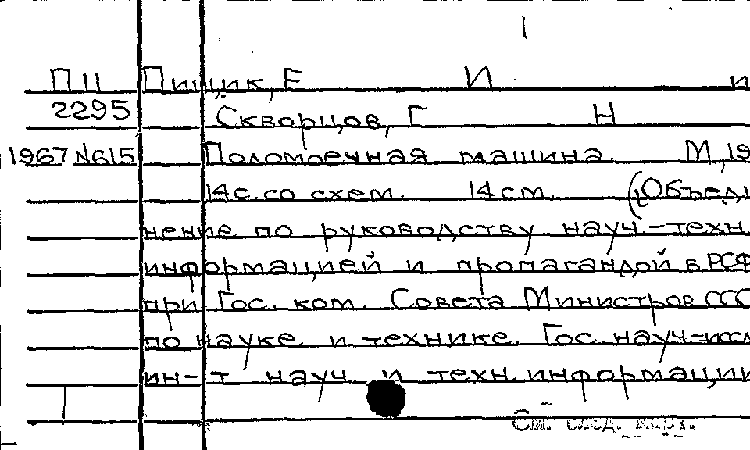 ПII Пищик, Е И и
2295 Скворцов, Г Н
1967 №615 Поломоечная машина М, 19
14 с. со схем. 14 см. (Объеди
нение по руководству науч-техн.
информацией и пропагандой в РСФ
при Гос. ком. Совета Министров ССС
по науке и технике. Гос науч-иссл
ин-т науч и техн. информации
См. след. карт.